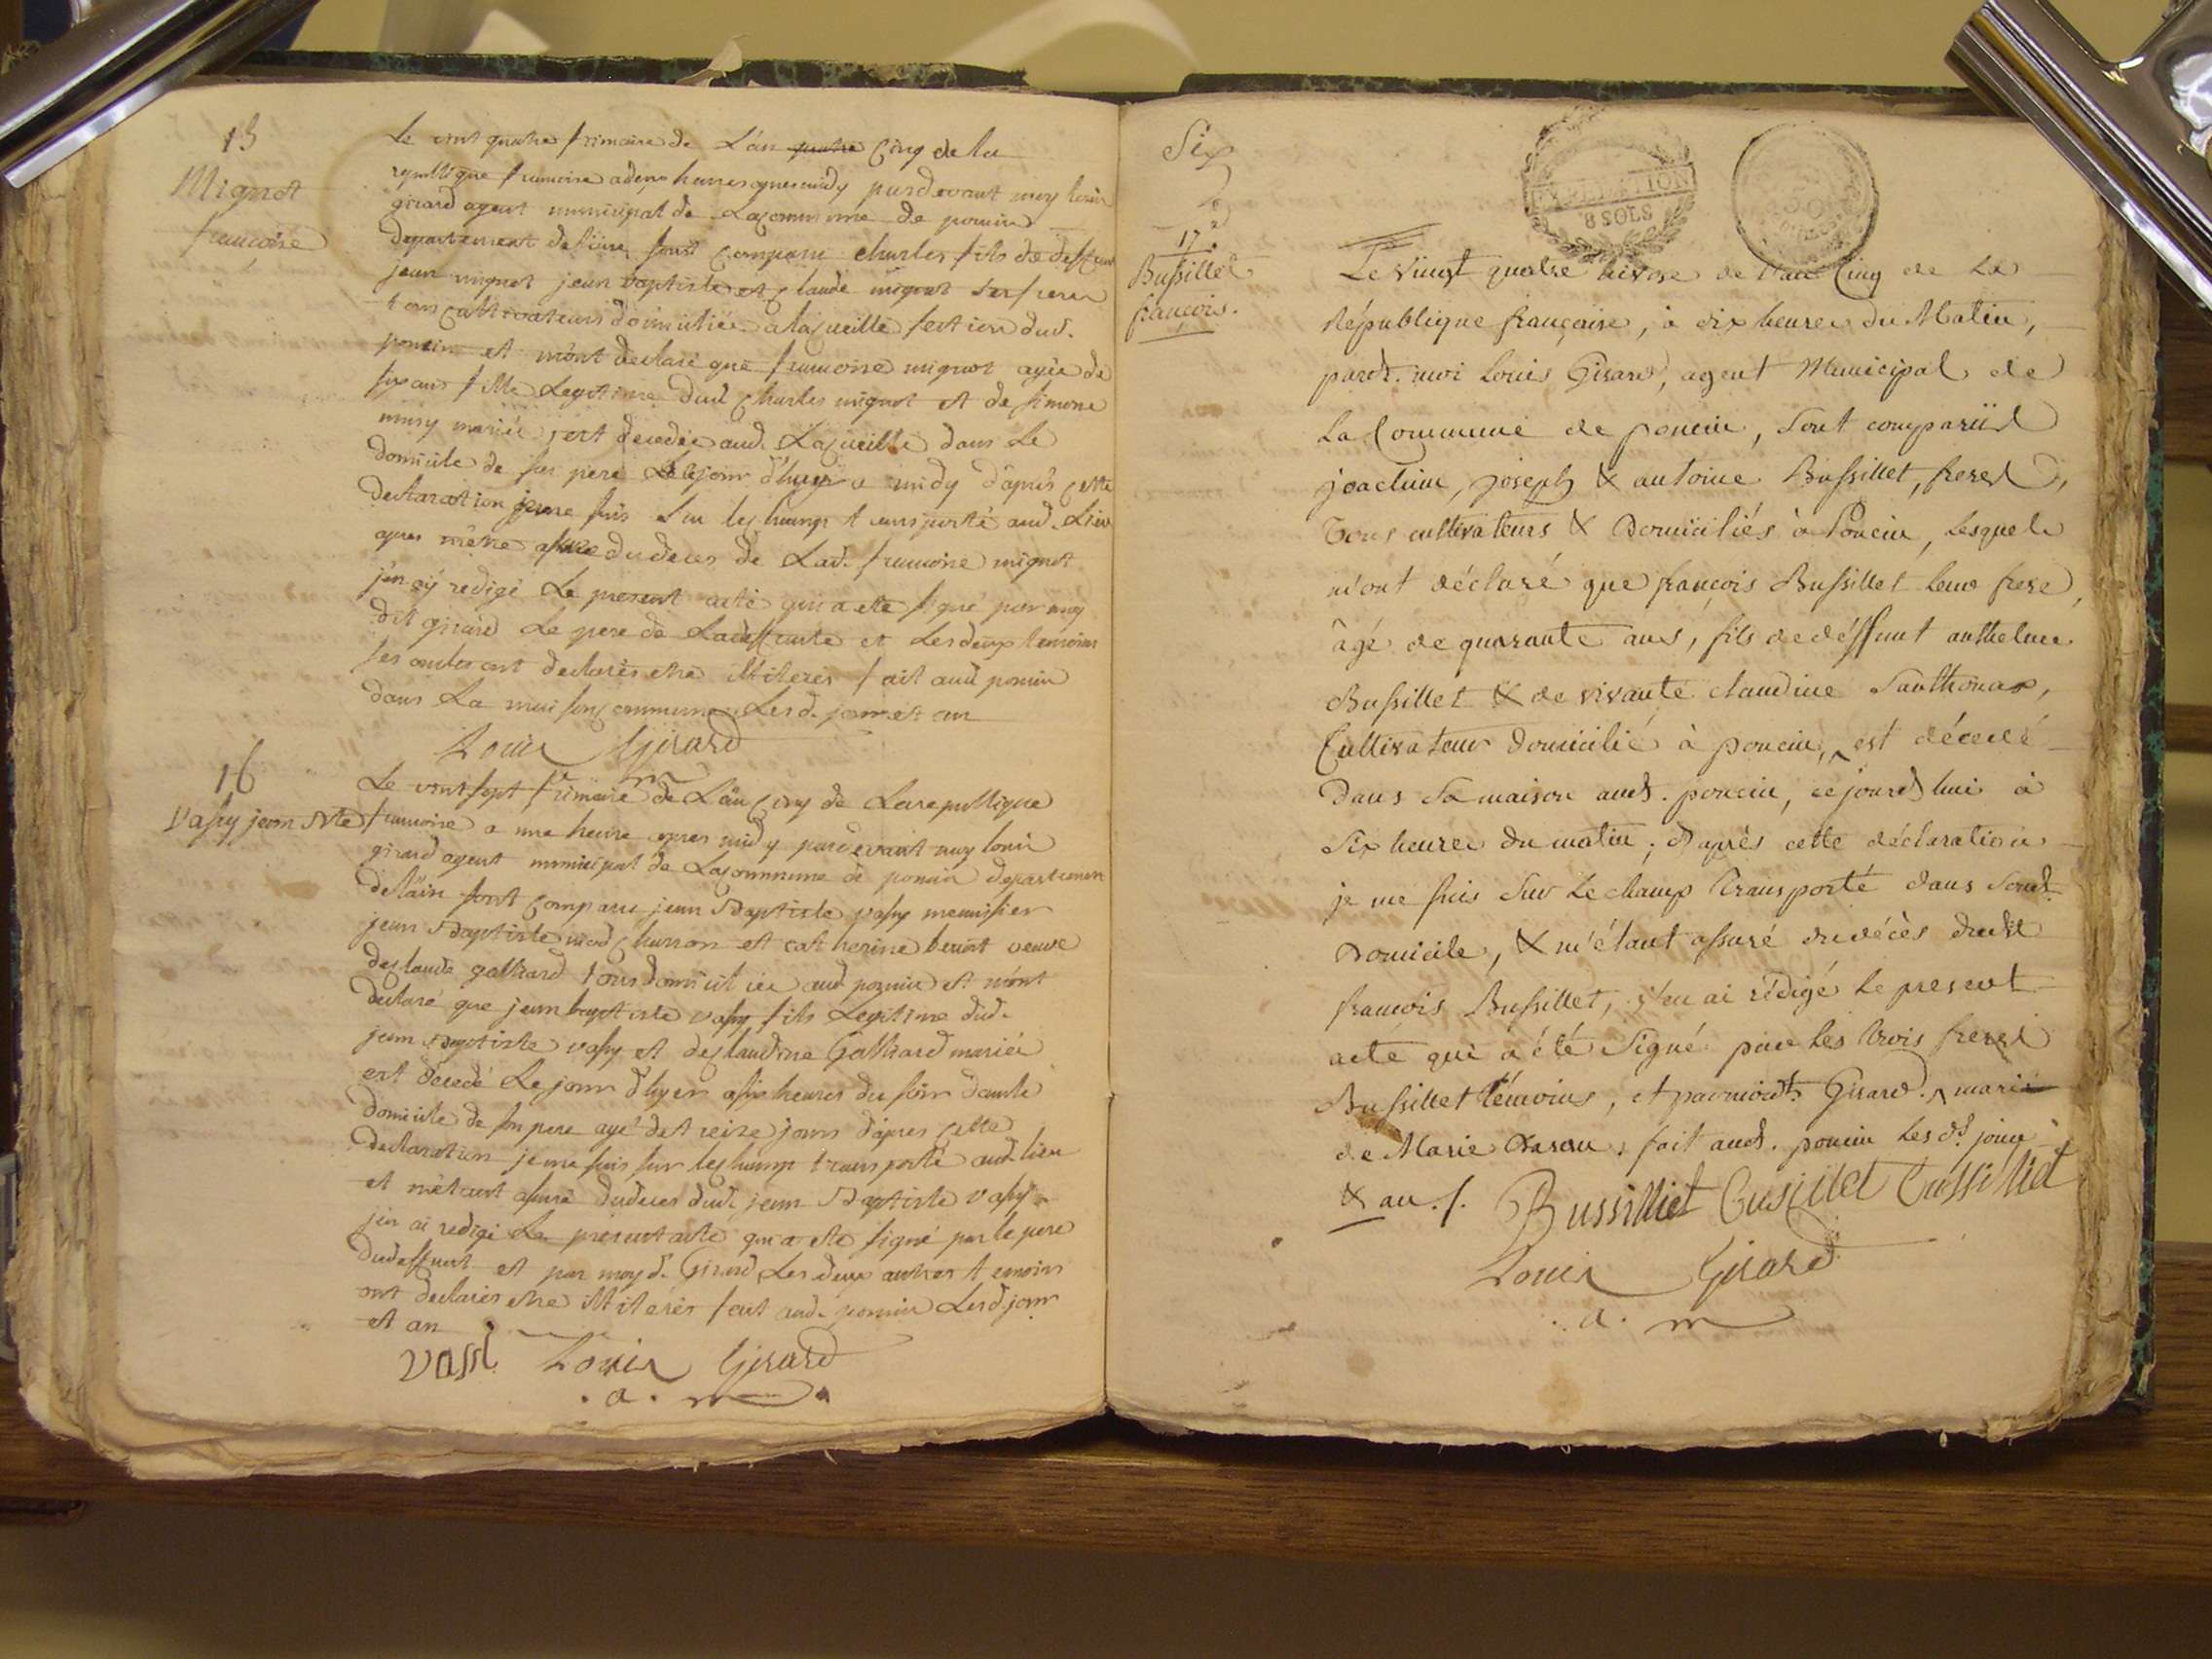 15
Mignot
francoise
Le vint quatre frimaire de L'an quatre Cinq de la
republique francoise a deux heures apres midy pardevant moy louis
girard agent municipal de La commune de poncin
departement de l'ain sont Comparu charles fils de deffunt
jean mignot jean baptiste et Claude mignot ses freres
tous Cultivateurs domiciliés a la Cueille section dud.
poncin et m'ont declaré que francoise mignot agée de
six ans fille Legitime dud Charles mignot et de simone
mariés est decedée aud. La Cueille dans Le
domicile de son pere Le jour d'huy a midy d'aprés Cette
declaration je me suis sur le Champ transporté aud. Lieu
apres m'être assuré du deces de Lad. francoise mignot
j'en ay redigé Le present acte qui a ete signé par moy
dit girard Le pere de La deffunte et Les deux temoins
ses oncles ont declarés etre illiterés fait aud poncin
dans La maison Commune Lesd. jour et an
Louis Girard
16
Vassy jean Bte
Le vint sept frimaire de L'an Cinq de La republique
francoise a une heure apres midy pardevant moy louis
girard agent municipal de La commune de poncin departement
de l'ain sont Comparu jean Baptiste vassy menuisier
jean Baptiste Charron et catherine benoit veuve
de Claude galliard tous domiciliés aud poncin et m'ont
declaré que jean baptiste vassy fils Legitime dud.
jean Baptiste vassy et de Claudine Galliard mariés
est décedé Le jour d'hyer a six heures du soir dans le
domicile de son pere agé de treize jours d'apres Cette
declaration je me suis sur le Champ transporté aud. lieu
et m'étant assuré du deces dud. jean Baptiste vassy
j'en ai redigé Le present acte qui a ete signé par le pere
du deffunt et par moy d. Girard Les deux autres temoins
ont declarés etre illiterés fait aud. poncin Lesd jour
et an
Vassi Louis Girard
. a . m
Six
17e
Bussillet
françois.
EXPÉDITION
8 SOLS
Le vingt quatre nivose de l'an Cinq de La
République française, à dix heures du Matin,
pardt. moi Louis Girard, agent Municipal de
La Commune de poncin, sont comparus
joachim, joseph & antoine Bussillet, freres,
Tous cultivateurs & Domiciliés à Poncin, Lesquels
m'ont déclaré que françois Bussillet leur frere,
âgé de quarante ans, fils de déffunt anthelme
Bussillet & de vivante claudine Santhonax,
Cultivateur domicilié à poncin, est décedé
dans sa maison aud. poncin, ce jourd'hui à
Six heures du matin; D'après cette déclaration
je me suis sur Le champ Transporté dans sond.
Domicile, & m'étant assuré du décès dudit
françois Bussillet, j'en ai rédigé Le present
acte qui a été signé par Les trois freres
Bussillet témoins, et par moidt. Girard. marié
de Marie fait aud. poncin Les ds. jour
& an ./. Bussilliet Bussillet Bussillet
Louis Girard
. a . m